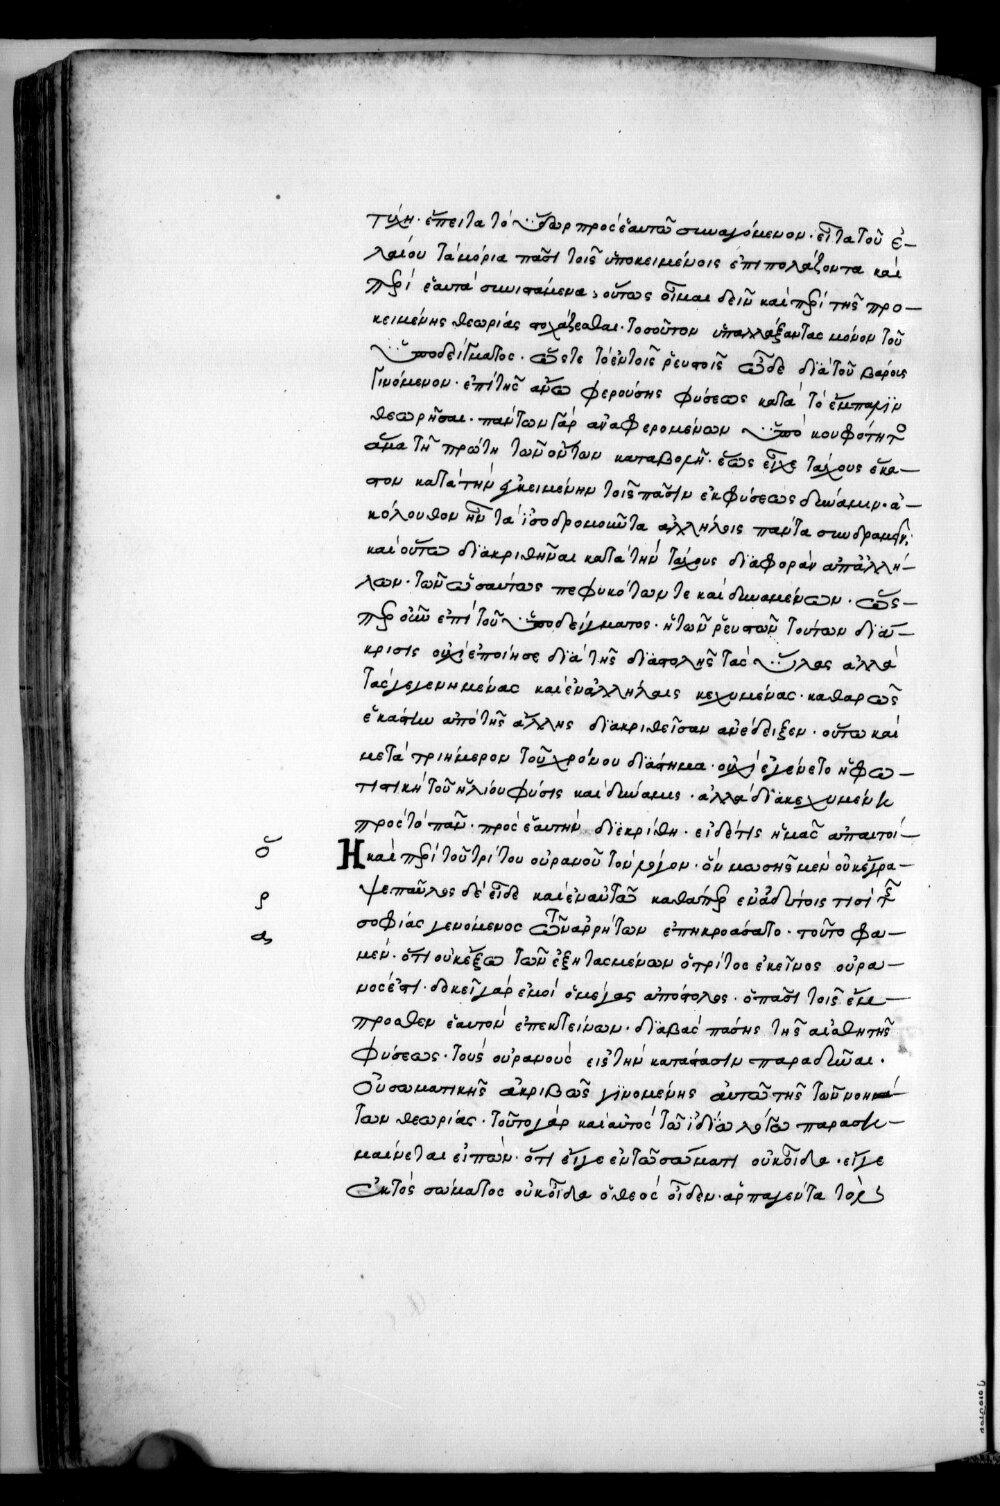 τύχη· ἔπειτα τὸ ὕδωρ πρὸς ἑαυτῶ συναγόμενον· εἶτα τοῦ ἐ-
λαίου τὰ μόρια πᾶσι τοῖς ὑποκειμένοις ἐπιπολάζοντα καὶ
περὶ ἑαυτὰ συνιστάμενα, οὕτως οἶμαι δεῖν καὶ περὶ τῆς προ-
κειμένης θεωρίας στοχάζεσθαι· τοσοῦτον ὑπαλλάξαντας μόνον τοῦ
ὑποδείγματος· ὥστε τὸ ἐν τοῖς ῥευστοῖς ὧδε διὰ τοῦ βάρους
γινόμενον· ἐπὶ τῆς ἄνω φερούσης φύσεως κατὰ τὸ ἔμπαλιν
θεωρῆσαι· πάντων γὰρ ἀναφερομένων ὑπὸ κουφότητος
ἅμα τῆ πρώτη τῶν ὄντων καταβολῆ· ἕως εἶχε τάχους ἕκα-
στον κατὰ τὴν ἐγκειμένην τοῖς πᾶσιν ἐκ φύσεως δύναμιν· ἀ-
κόλουθον ἦν τὰ ἰσοδρομοῦντα ἀλλήλοις πάντα συνδραμεῖν·
καὶ οὕτω διακριθῆναι κατὰ τὴν τάχους διαφορὰν ἀπ' ἀλλή-
λων· τῶν ὡσαύτως πεφυκότων τε καὶ δυναμένων· ὥς-
περ οὖν ἐπὶ τοῦ ὑποδείγματος· ἡ τῶν ῥευστῶν τούτων διά-
κρισις οὐχὶ ἐποίησε διὰ τῆς διαστολῆς τὰς ὕλας ἀλλὰ
τὰς γεγενημένας καὶ ἐν ἀλλήλαις κεχυμένας· καθαρῶς
ἑκάστην ἀπὸ τῆς ἄλλης διακριθεῖσαν ἀνέδειξεν· οὕτω καὶ
μετὰ τριήμερον τοῦ χρόνου διάστημα· οὐχὶ ἐγένετο ἡ φω-
τιστικὴ τοῦ ἡλίου φύσις καὶ δύναμις· ἀλλὰ διακεχυμένη
πρὸς τὸ πᾶν· πρὸς ἑαυτὴν διεκρίθη· εἰ δέ τις ἡμᾶς ἀπαιτοί-
Η καὶ περὶ τοῦ τρίτου οὐρανοῦ τὸν λόγον· ὃν μωσῆς μὲν οὐκ ἔγρα-
ψε παῦλος δὲ εἶδε καὶ ἐν αὐτῶ καθάπερ ἐν ἀδύτοις τισὶ τῆς
σοφίας γενόμενος τῶν ἀρρήτων ἐπηκροάσατο· τοῦτο φα-
μέν· ὅτι οὐκ ἔξω τῶν ἐξητασμένων ὁ τρίτος ἐκεῖνος οὐρα-
νός ἐστι· δοκεῖ γὰρ ἐμοὶ ὁ μέγας ἀπόστολος· ὁ πᾶσι τοῖς ἔμ-
προσθεν ἑαυτὸν ἐπεκτείνων· διαβὰς πάσης τῆς αἰσθητῆς
φύσεως· τοὺς οὐρανοὺς εἰς τὴν κατάστασιν παραδῦναι·
Οὐ σωματικῆς ἀκριβῶς γινομένης αὐτῶ τῆς τῶν νοη
των θεωρίας· τοῦτο γὰρ καὶ αὐτὸς τῶ ἰδίω λόγω παραση-
μαίνεται εἰπὼν· ὅτι εἴγε ἐν τῶ σώματι οὐκ οἶδα· εἴγε
ἐκτὸς σώματος οὐκ οἶδα ὁ θεὸς οἶδεν· ἁρπαγέντα τὸν
ὅ
ρ
α